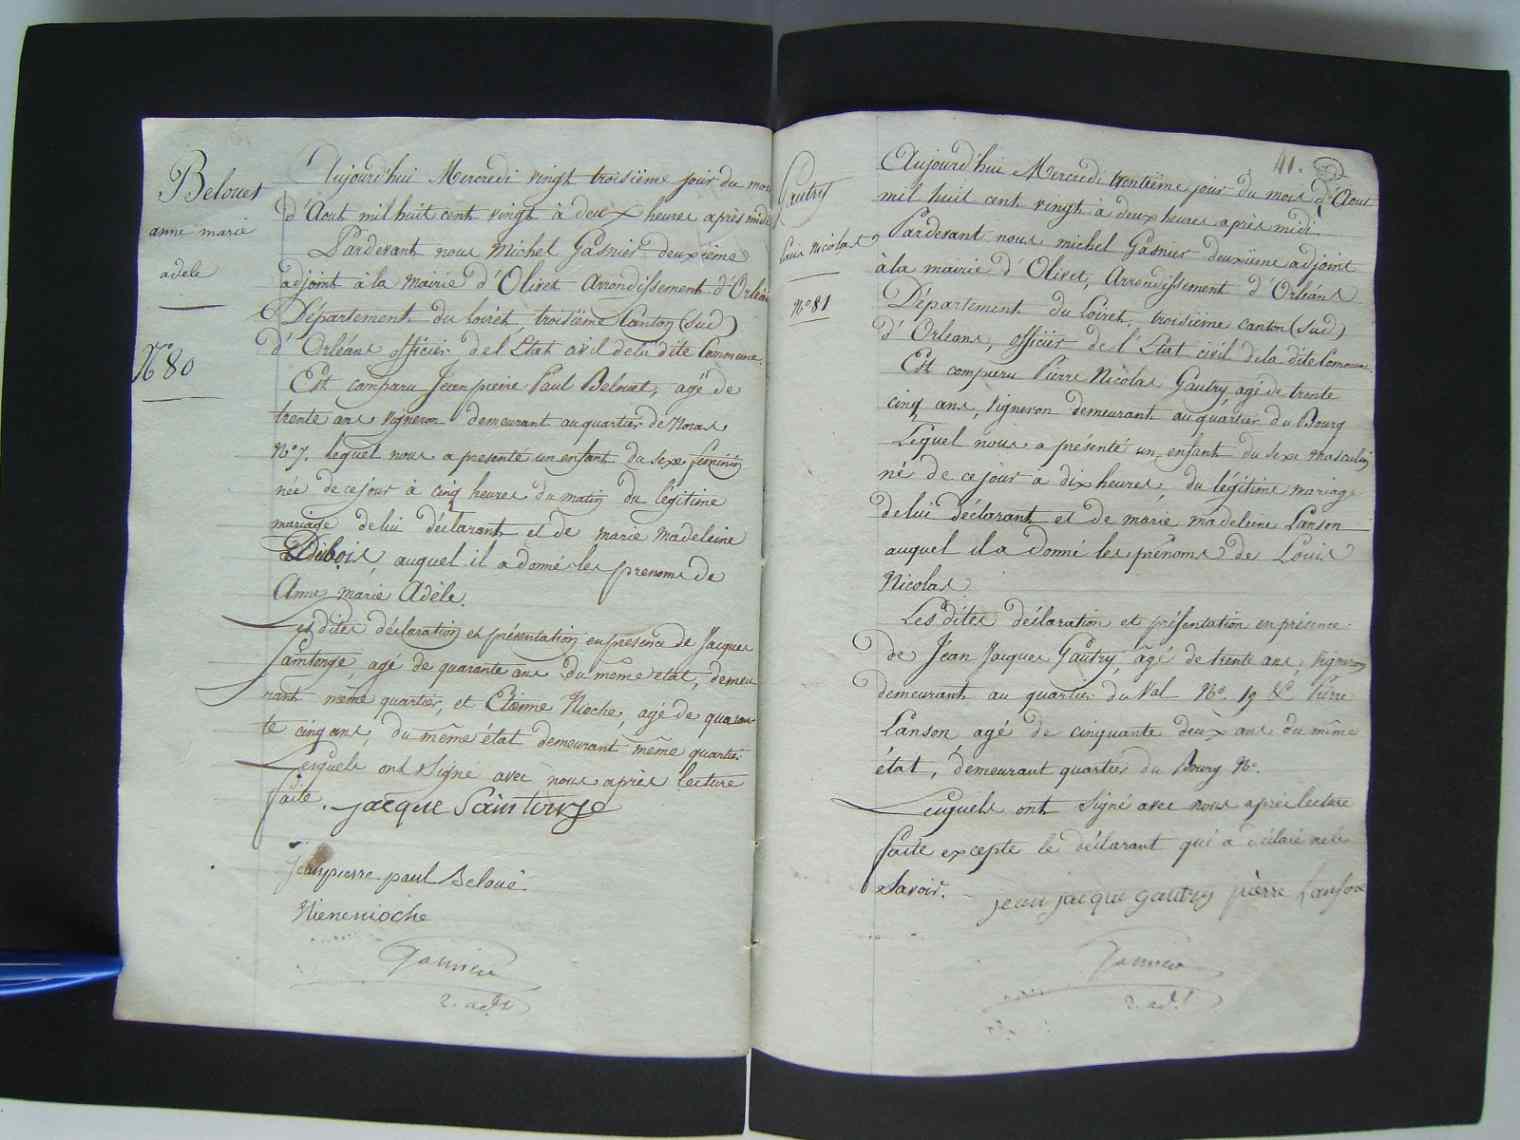 Belouet
anne marie
adele
N° 80
Aujourd'hui Mercredi vingt troisième jour du mois
d'Aout mil huit cent vingt à deux heures après midi
Pardevant nous Michel Gasnier deuxième
adjoint à la mairie d'Olivet Arrondissement d'Orléans
Département du Loiret, troisième Canton (Sud)
d'Orléans officier de l'Etat civil de la dite Commune.
Est comparu Jean pierre Paul Belouet, agé de
trente ans vigneron demeurant au quartier de
N° 7. lequel nous a presenté un enfant du sexe féminin
née de ce jour à cinq heures du matin du légitime
mariage de lui déclarant et de marie madeleine
Dubois, auquel il a donné les prenoms de
Anne marie Adèle.
Les dites déclaration et présentation en presence de Jacques
Saintonge, agé de quarante ans du même etat, demeu
rant même quartier, et Etienne Nioche, agé de quaran
te cinq ans, du même état demeurant même quartier.
Lesquels ont signé avec nous après lecture
faite. jacque Saintonge
Jean pierre paul Beloué
Etienenioche
Gasnier
2. adjt
41.
Gautry
Louis Nicolas
N° 81
Aujourd'hui Mercredi trentième jour du mois d'Aout
mil huit cent vingt à deux heures après midi.
Pardevant nous michel Gasnier deuxième adjoint
à la mairie d'Olivet, Arrondissement d'Orléans
Département du Loiret, troisième canton (Sud)
d'Orleans, officier de l'Etat civil de la dite Commune.
Est comparu Pierre Nicolas Gautry, agé de trente
cinq ans, vigneron demeurant au quartier du Bourg
Lequel nous a présenté un enfant du sexe masculin
né de ce jour à dix heures, du légitime mariage
de lui déclarant et de marie madeleine Lanson
auquel il a donné les prénoms de Louis
Nicolas
Les dites déclaration et présentation en présence
de Jean Jacques Gautry, agé de trente ans, vigneron
demeurant au quartier du Val N°. 19 & Pierre
Lanson agé de cinquante deux ans du même
état, demeurant quartier du Bourg N°.
Lesquels ont signé avec nous après lecture
faite excepte le déclarant qui a déclaré ne le
savoir. jean jacque gautry pierre Lanson
Gasnier
2. adjt